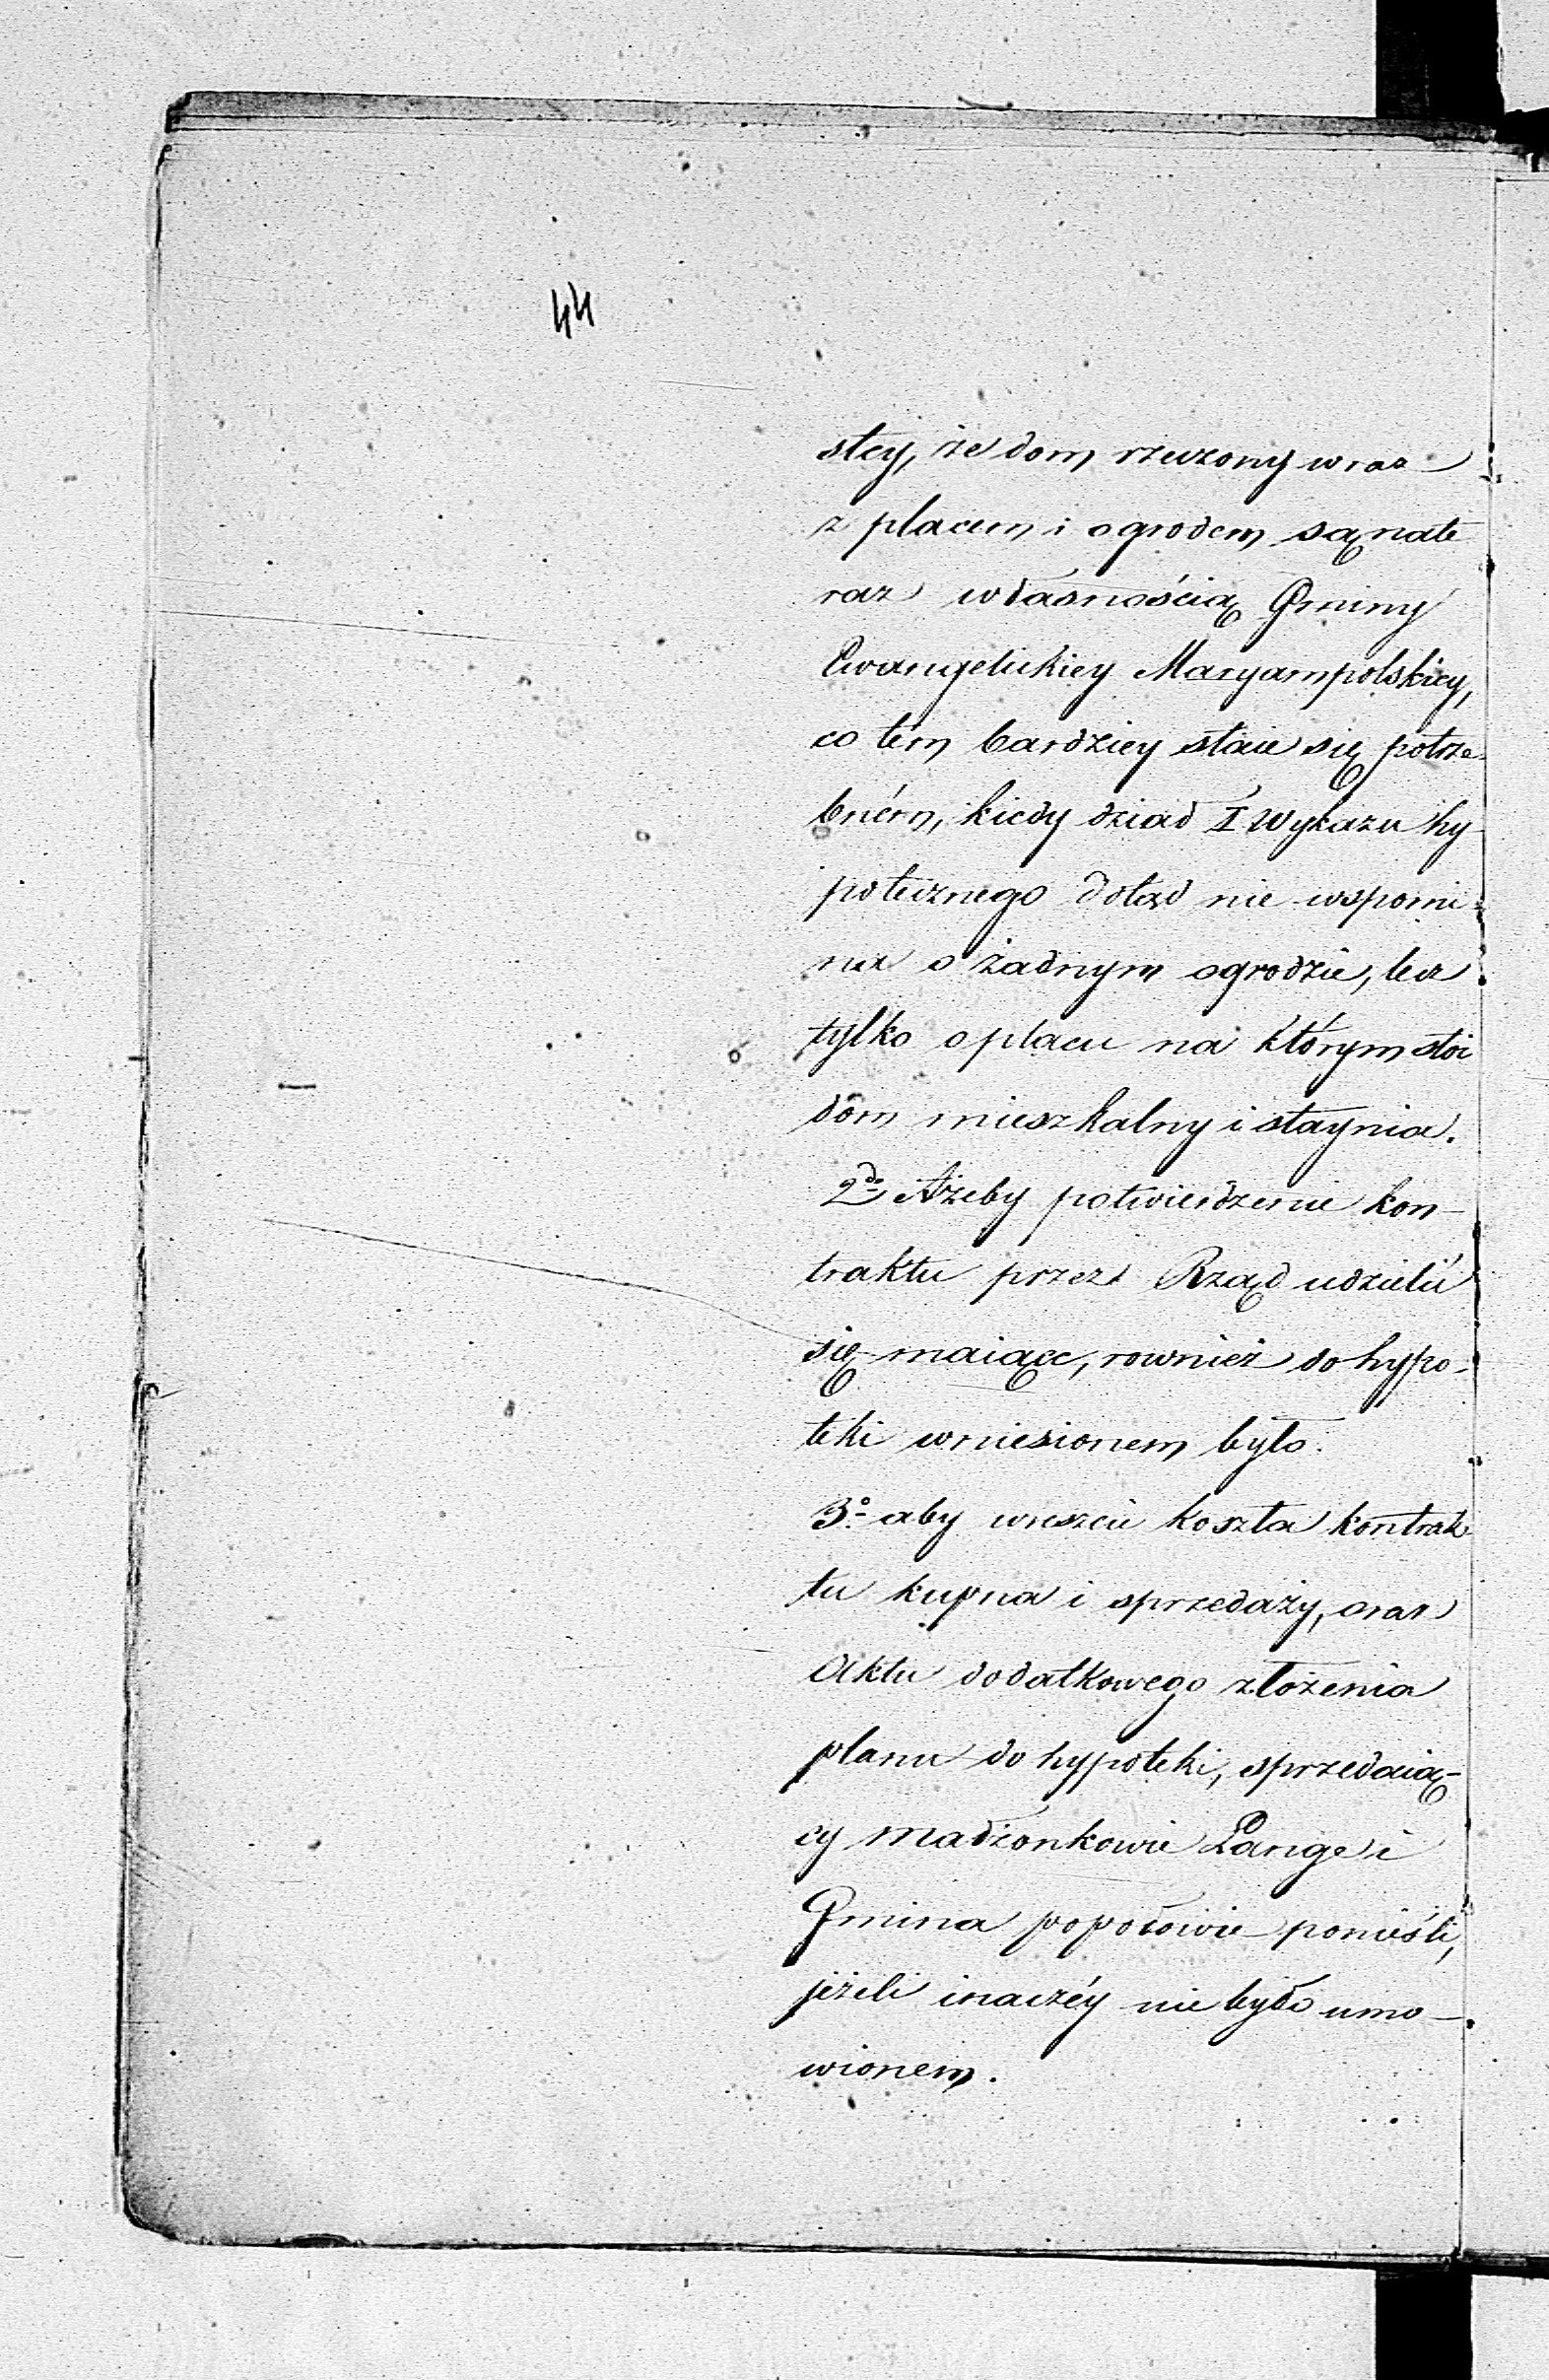 44
stey, że dom rzeczony wraz
z placem i ogrodem są nate
raz własnością Gminy
Ewangelickiey Maryampolskiey,
co tém bardziey staie się potrze-
bném, kiedy dział I Wykazu hy-
potecznego dotąd nie wspomi-
na o żadnym ogrodzie, lecz
tylko o placu na którym stoi
dom mieszkalny i staynia.
2do Ażeby potwierdzenie kon-
traktu przez Rząd udzielić
się maiące, rownież do hypo-
teki wniesionem było.
3o aby wreszcie koszta kontrak
tu kupna i sprzedaży, oraz
Aktu dodatkowego złożenia
planu do hypoteki, sprzedaią-
cy małżonkowie Lange i
Gmina po połowie ponieśli,
jeżeli inaczéy nie było umo-
wionem.